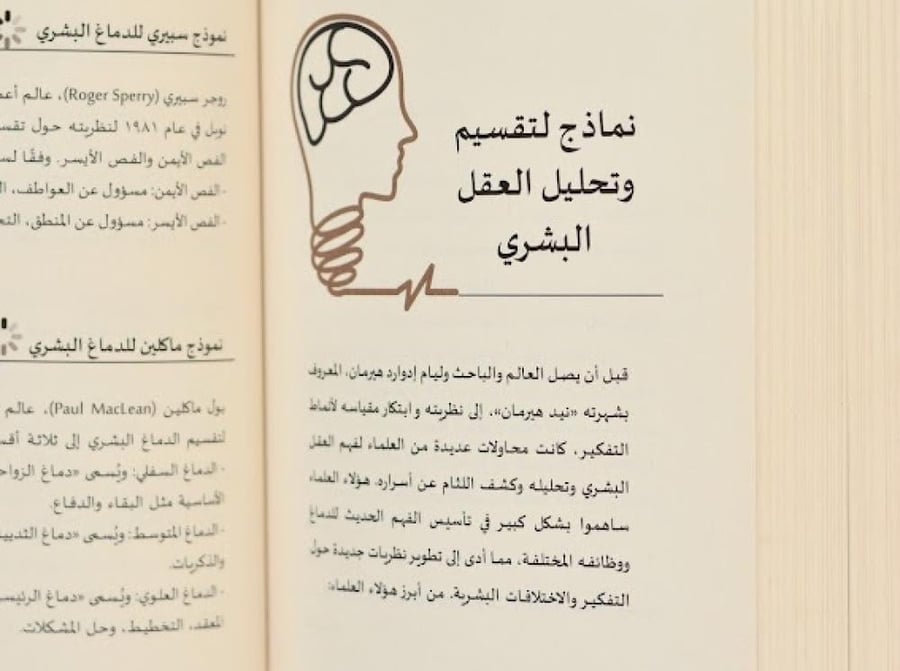 نماذج لتقسيم
وتحليل العقل
البشري
قبل أن يصل العالم والباحث وليام إدوارد هيرمان، المعروف
بشهرته «نيد هيرمان»، إلى نظريته وابتكار مقياسه لأنماط
التفكير، كانت محاولات عديدة من العلماء لفهم العقل
البشري وتحليله وكشف اللثام عن أسراره. هؤلاء العلماء
ساهموا بشكل كبير في تأسيس الفهم الحديث للدماغ
ووظائفه المختلفة، مما أدى إلى تطوير نظريات جديدة حول
التفكير والاختلافات البشرية. من أبرز هؤلاء العلماء:
نموذج سبيري للدماغ البشري
روجر سبيري (Roger Sperry)، عالم
نوبل في عام ١٩٨١ لنظريته حول
الفص الأيمن والفص الأيسر. وفقًا
-الفص الأيمن: مسؤول عن العواطف،
-الفص الأيسر: مسؤول عن المنطق،
نموذج ماكلين للدماغ البشري
بول ماكلين (Paul MacLean)، عالم
لتقسيم الدماغ البشري إلى ثلاثة
-الدماغ السفلي: ويُسمى «دماغ
الأساسية مثل البقاء والدفاع.
-الدماغ المتوسط: ويُسمى «دماغ
والذكريات.
-الدماغ العلوي: ويُسمى «دماغ
المعقد، التخطيط، وحل المشكلات.